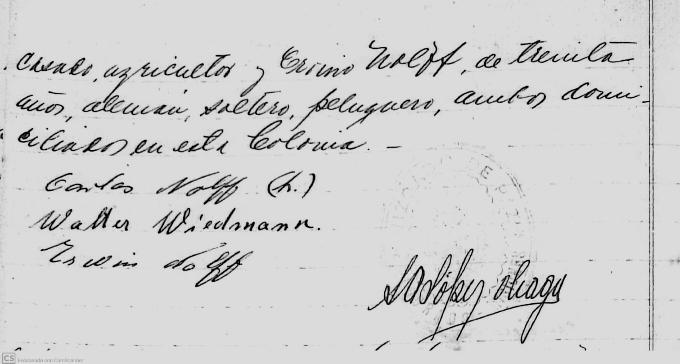 casado, agricultor y Erwino Nolff, de treinta
años, alemán, soltero, peluquero, ambos domi-
ciliados en esta Colonia. —
Carlos Nolff (h.)
Walter Wiedmann.
Erwin Nolff
López
CS Escaneado con CamScanner